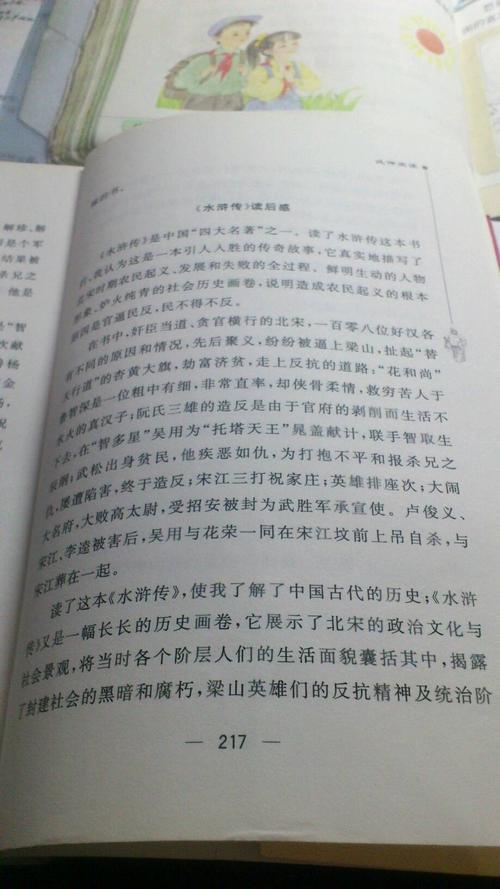 解珍、解
是个军
结果被
杀兄之
他是
是“智
次献
杨
金
的书。
《水浒传》读后感
《水浒传》是中国“四大名著”之一。读了水浒传这本书
后，我认为这是一本引人入胜的传奇故事，它真实地描写了
北宋时期农民起义、发展和失败的全过程。鲜明生动的人物
形象、炉火纯青的社会历史画卷，说明造成农民起义的根本
原因是官逼民反，民不得不反。
在书中，奸臣当道、贪官横行的北宋，一百零八位好汉各
有不同的原因和情况，先后聚义，纷纷被逼上梁山，扯起“替
天行道”的杏黄大旗，劫富济贫，走上反抗的道路；“花和尚”
鲁智深是一位粗中有细，非常直率，却侠骨柔情，救穷苦人于
水火的真汉子；阮氏三雄的造反是由于官府的剥削而生活不
下去，在“智多星”吴用为“托塔天王”晁盖献计，联手智取生
辰纲；武松出身贫民，他疾恶如仇，为打抱不平和报杀兄之
仇，屡遭陷害，终于造反；宋江三打祝家庄；英雄排座次；大闹
大名府，大败高太尉，受招安被封为武胜军承宣使。卢俊义、
宋江、李逵被害后，吴用与花荣一同在宋江坟前上吊自杀，与
宋江葬在一起。
读了这本《水浒传》，使我了解了中国古代的历史；《水浒
传》又是一幅长长的历史画卷，它展示了北宋的政治文化与
社会景观，将当时各个阶层人们的生活面貌囊括其中，揭露
了封建社会的黑暗和腐朽，梁山英雄们的反抗精神及统治阶
— 217 —